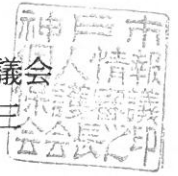 議会
三
神戸市
個人情報
保護審議
会会長印